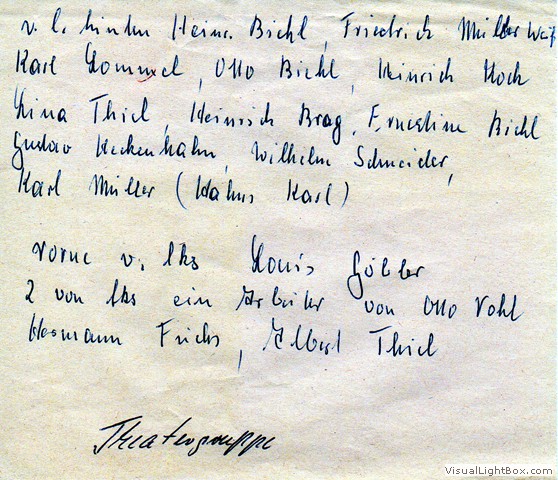 v. l. hinten Heinr. Biehl, Friedrich Müller Weif
Karl Lommel, Otto Biehl, Heinrich Hoch
Lina Thiel, Heinrich Brag, Ernestine Biehl
Gustav Heckenhahn, Wilhelm Schneider,
Karl Müller (Hahns Karl)
vorne v. lks Louis Göbler
2 von lks ein Arbeiter von Otto Vohl
Hermann Fuchs, Albert Thiel
Theatergruppe
VisualLightBox.com